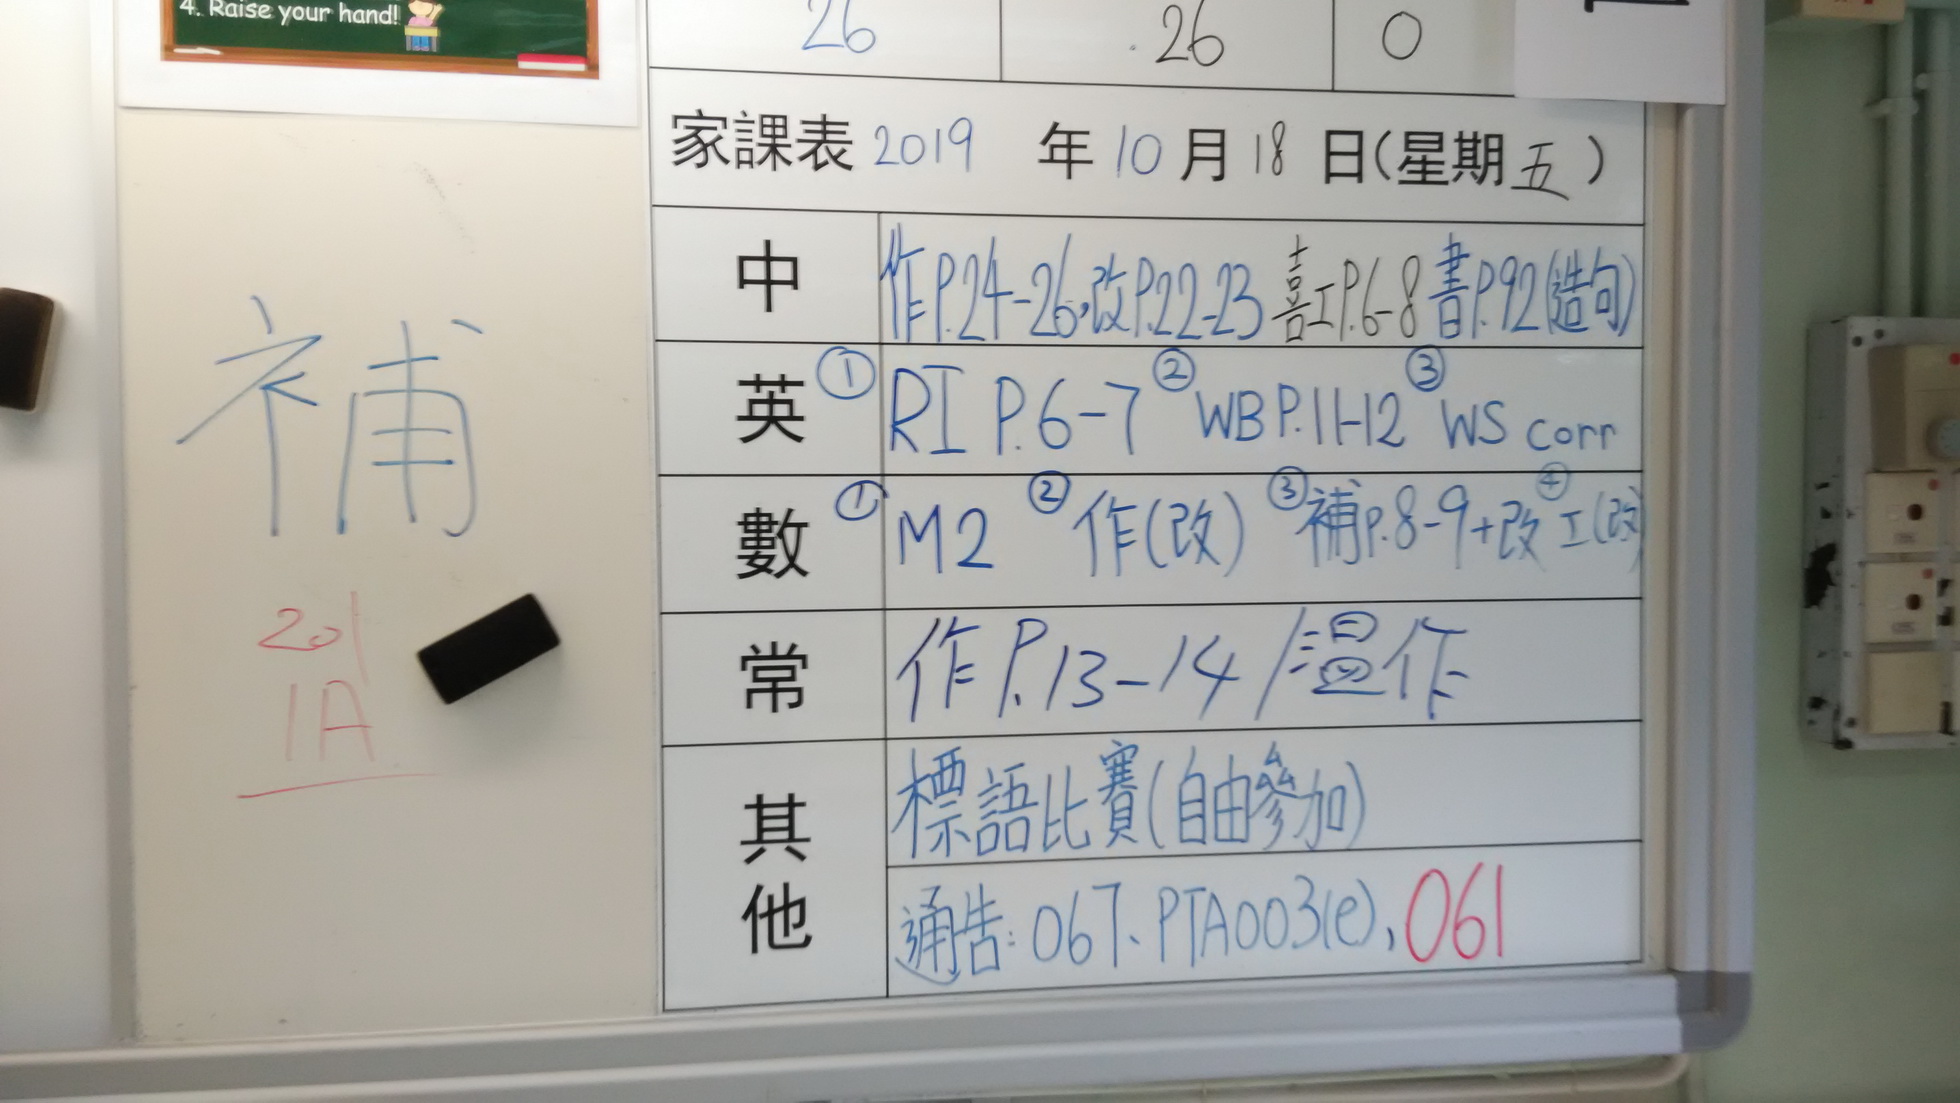 4. Raise your hand!
26 26 0
家課表 2019 年 10 月 18 日(星期五)
中 作P.24-26,改P.22-23 喜工P.6-8 書P.92(造句)
英 ① RI P.6-7 ② WB P.11-12 ③ WS corr
數 ① M2 ② 作(改) ③ 補P.8-9+改 ④ 工(改)
常 作P.13-14/溫作
其他 標語比賽(自由參加)
通告:067、PTA003(e),061
補
201
1A